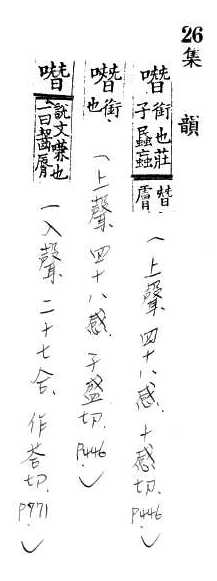 26 集韻
噆 銜也莊子蟁蝱噆膚 (上聲 四十八感 七感切. P446
噆 銜也 (上聲 四十八感 子 切. P446
噆 說文嗛也一曰齧脣 (入聲 二十七合. 作荅切. P771